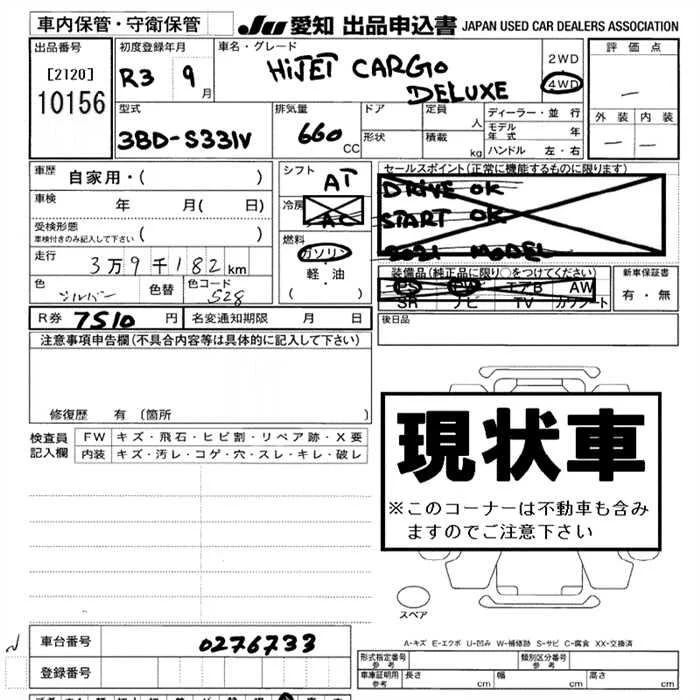 車内保管・守衛保管
JU 愛知 出品申込書 JAPAN USED CAR DEALERS ASSOCIATION
出品番号
[2120]
10156
初度登録年月
R3 9 月
車名・グレード
HIJET CARGO
DELUXE
2WD
4WD
評価点
—
外装 内装
— —
型式
3BD-S331V
排気量
660 CC
ドア
形状
定員 人
積載 kg
ディーラー・並行
モデル年式 年
ハンドル 左・右
車歴
自家用・( )
車検
年 月( 日)
受検形態
車検付きのみ記入して下さい ( )
走行
3万9千182km
色
シルバー
色替
色コード
S28
シフト
AT
冷房
AC
燃料
ガソリン
軽・油
( )
セールスポイント(正常に機能するものに限ります)
DRIVE OK
START OK
2021 MODEL
装備品(純正品に限り○をつけてください)
PS PW エアB AW
SR ナビ TV カワシート
新車保証書
有・無
R券 7510 円
名変通知期限 月 日
後日品
注意事項申告欄(不具合内容等は具体的に記入して下さい)
修復歴 有 (箇所 )
検査員
記入欄
FW キズ・飛石・ヒビ割・リペア跡・X要
内装 キズ・汚レ・コゲ・穴・スレ・キレ・破レ
現状車
※このコーナーは不動車も含み
ますのでご注意下さい
スペア
A-キズ E-エクボ U-凹み W-補修跡 S-サビ C-腐食 XX-交換済
車台番号
0276733
登録番号
形式指定番号
参考
類別区分番号
参考
車庫証明用
参考
長さ cm 幅 cm 高さ cm